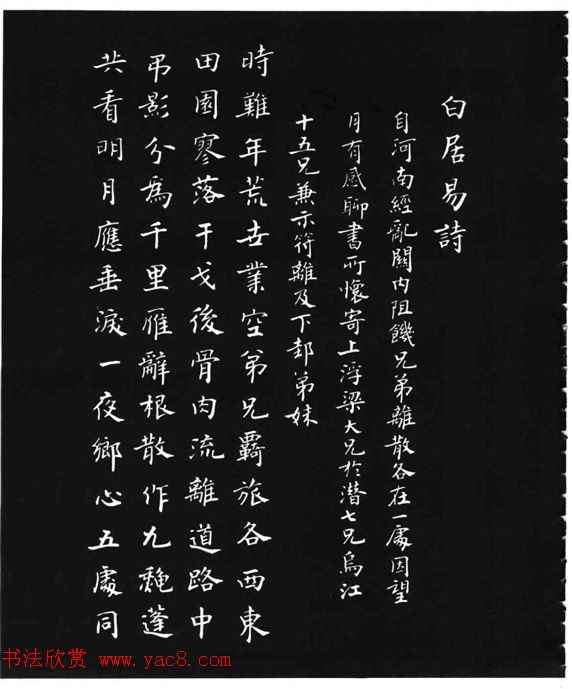 白居易詩
自河南經亂關内阻饑兄弟離散各在一處因望
月有感聊書所懷寄上浮梁大兄於潛七兄烏江
十五兄兼示符離及下邽弟妹
時難年荒世業空弟兄羇旅各西東
田園寥落干戈後骨肉流離道路中
吊影分為千里雁辭根散作九穐蓬
共看明月應垂淚一夜鄉心五處同
书法欣赏 www.yac8.com